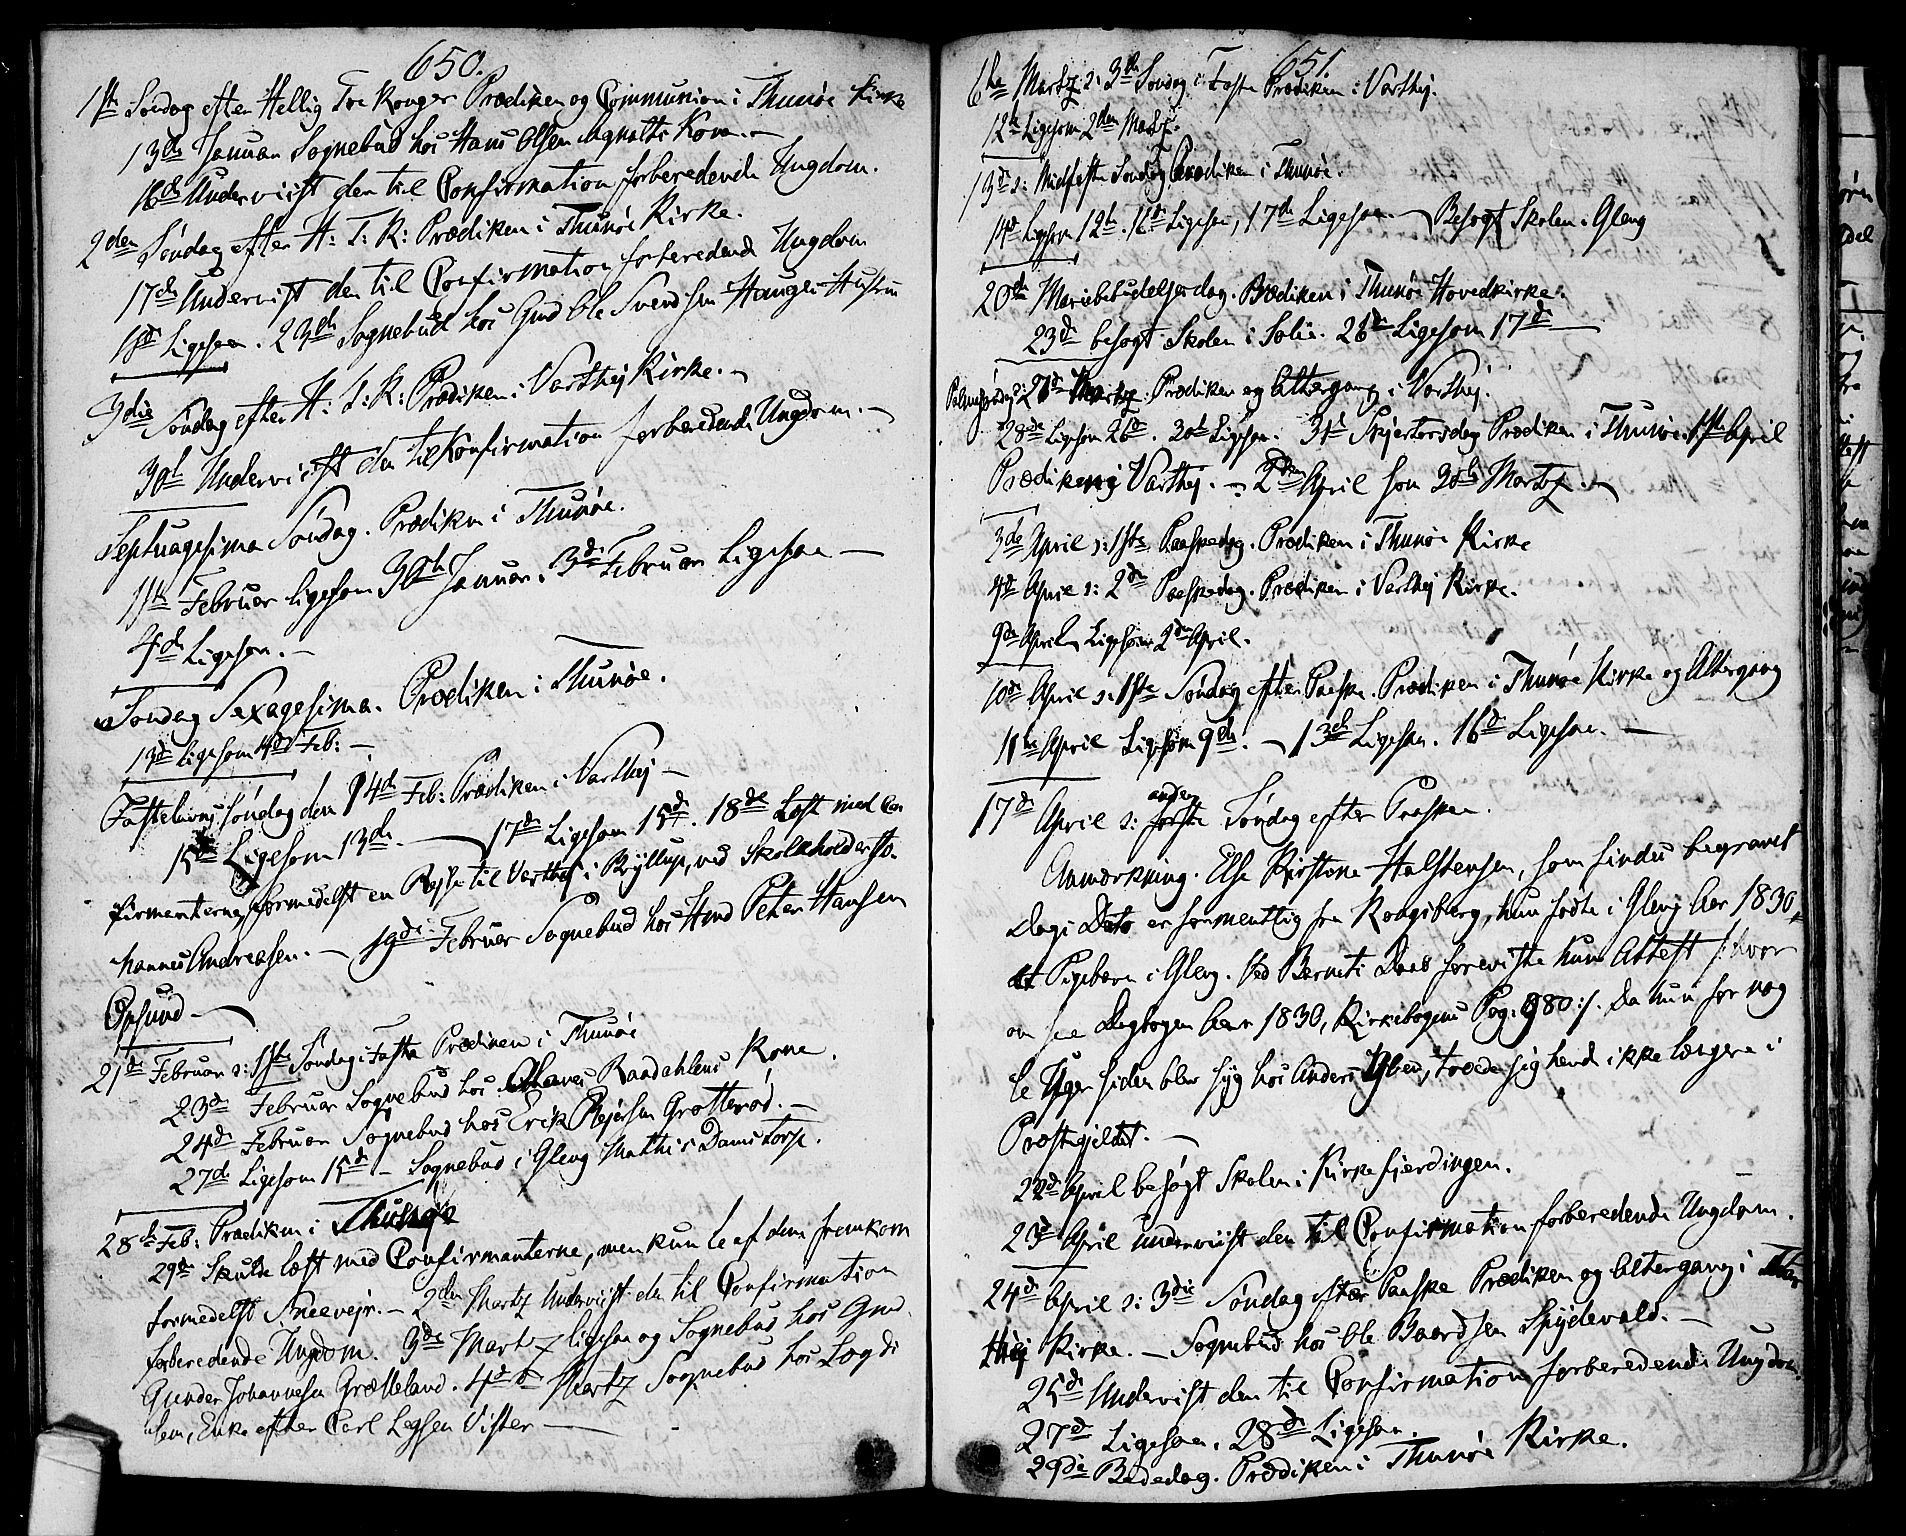 650.
1ste Søndag efter Hellig Tre Konger Prædiken og Communion i Thunøe Kirke
13de Januar Sognebud hos Hans Olsen Kone.
16de Underviist den til Confirmation forberedende Ungdom.
2den Søndag efter H: T: K: Prædiken i Thunøe Kirke.
17de Underviist den til Confirmation forberedende Ungdom
18de Ligesaa. 23de Sognebud hos Gud Ole Svendsen Haugen Hustru
3die Søndag efter H: T: K: Prædiken i Varthej Kirke.
30te Underviist den til Konfirmation forberedende Ungdom.
Septuagesima Søndag. Prædiken i Thunøe.
11te Februar ligesom 30te Januar. 3de Februar Ligesaa
4de Ligesaa.
Søndag Sexagesima. Prædiken i Thunøe.
13de ligesom 4de Feb:
Fastelavns Søndag den 14de Feb: Prædiken i Varthej
15de Ligesom 13de. 17de Ligesom 15de. 18de Læst med Con
firmanterne, formedelst en Rejse til Varthej i Ryllup, ved Skoleholder Jo
hannes Andreasen. 19de Februar Sognebud hos Hend Peter Hansen
Opsund
21de Februar ɔ: 1ste Søndag i Faste Prædiken i Thunøe
23de Februar Sognebud hos Raadahlens Kone.
24de Februar Sognebud hos Erik Rejersen Grotterød.
27de Ligesom 15de – Sognebud i Gleng Mathis Damstorp.
28de Feb: Prædiken i Thunøe
29de Skulde læst med Confirmanterne, men kun 1e af dem fremkom
formedelst Sneeveir. – 2den Martz Underviist den til Confirmation
forberedende Ungdom. 3de Martz ligesaa og Sognebud hos Gud
Gunder Johannesen Grælleland. 4de Martz Sognebud hos Logdi
lem, Enke efter Carl Vister
651
6te Martz ɔ: 3de Søndag i Faste Prædiken i Varthej.
12te Ligesom 2den Martz.
13de ɔ: Midfaste Søndag Prædiken i Thunøe.
14de Ligesom 12te. 16de Ligesaa, 17de Ligesaa. Besøgt Skolen i Gleng
20de Mariæ bebudelsesdag. Prædiken i Thunøe Hovedkirke.
23de besøgt Skolen i Solie. 26de Ligesom 17de
Palmesøndag 27de Martz. Prædiken og Altergang i Varthej.
28de Ligesom 26de. 30te Ligesaa. 31te Skjertorsdag Prædiken i Thunøe. 1ste April
Prædiken i Varthej. – 2den April som 30te Martz.
3de April ɔ: 1ste Paaskedag. Prædiken i Thunøe Kirke
4de April ɔ: 2de Paaskedag. Prædiken i Varthej Kirke.
9de April Ligesom 2den April.
10de April ɔ: 1ste Søndag efter Paaske. Prædiken i Thunøe Kirke og Altergang
11te April Ligesom 9de. 13de Ligesaa. 16de Ligesaa.
17de April ɔ: første anden Søndag efter Paasken.
Anmærkning. Else Kirstine Halstensen, som findes begravet
Dags Dato er formentlig fra Kongsberg, hun fødte i Gleng Aar 1830
et Pigebarn i Gleng. Ved Barnets Daab foreviste hun Attest /:hvor
om see Dagbogen Aar 1830, Kirkebogens Pag. 980:/. Da hun for nog
le Uger siden blev syg hos Anders Yben, troede sig hend ikke længere i
Præstegjeldet.
22de April besøgt Skolen i Kirkefjerdingen.
23de April Underviist den til Confirmation forberedende Ungdom.
24de April ɔ: 3die Søndag efter Paaske Prædiken og Altergang i Var
thej Kirke. – Sognebud hos Ole Baardsen Spydevold.
25de Underviist den til Confirmation forberedende Ungdom.
27de Ligesaa. 28de Ligesaa.
29de Bededag. Prædiken i Thunøe Kirke.